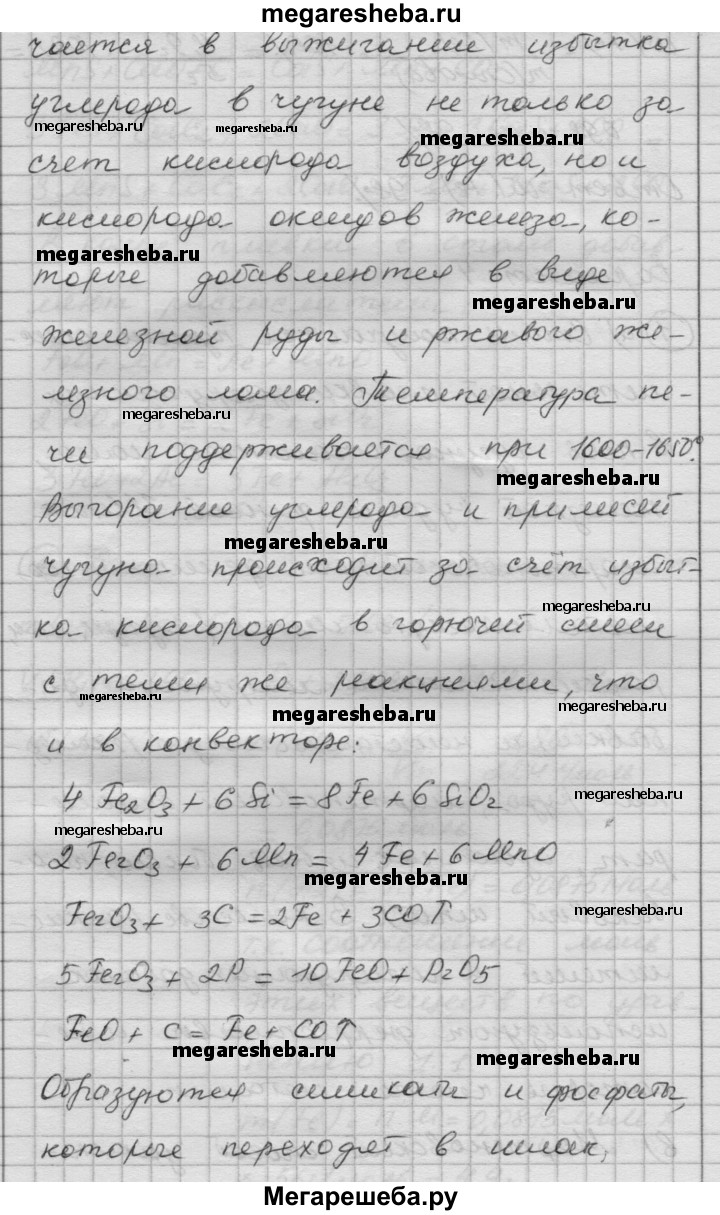 megaresheba.ru
чается в выжигании избытка
углерода в чугуне не только за
megaresheba.ru
megaresheba.ru
megaresheba.ru
счет кислорода воздуха, но и
кислорода оксидов железа, ко-
megaresheba.ru
торые добавляются в виде
megaresheba.ru
железной руды и ржавого же-
лезного лома. Температура пе-
megaresheba.ru
чи поддерживается при 1600-1650°.
megaresheba.ru
Выгорание углерода и примесей
megaresheba.ru
чугуна происходит за счёт избыт-
megaresheba.ru
ка кислорода в горючей смеси
с теми же реакциями, что
megaresheba.ru
megaresheba.ru
megaresheba.ru
и в конвекторе:
4 Fe2O3 + 6 Si = 8 Fe + 6 SiO2
megaresheba.ru
megaresheba.ru
2 Fe2O3 + 6 Mn = 4 Fe + 6 MnO
megaresheba.ru
Fe2O3 + 3C = 2Fe + 3CO↑
megaresheba.ru
5 Fe2O3 + 2P = 10 FeO + P2O5
FeO + C = Fe + CO↑
megaresheba.ru
megaresheba.ru
Образуются силикаты и фосфаты,
которые переходят в шлак,
Мегарешеба.ру